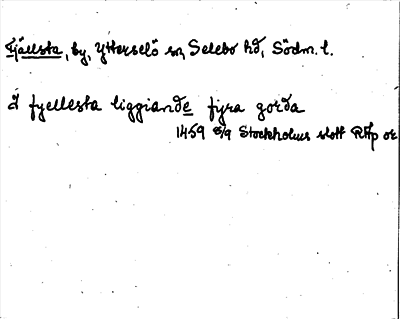 Fjällsta, by, Ytterselö sn, Selebo hd, Södm. l.
i fyellesta liggiande fyra gorda
1459 5/9 Stockholms slott RAp or